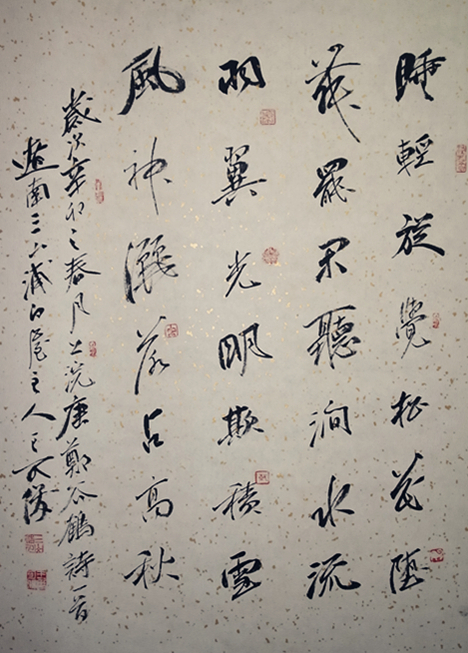 睡輕旋覺松花墮
舞罷閑聽澗水流
羽翼光明欺積雪
風神灑落占高秋
歲次辛卯之春月上浣唐鄭谷鶴詩一首
遼南三山浦白主人